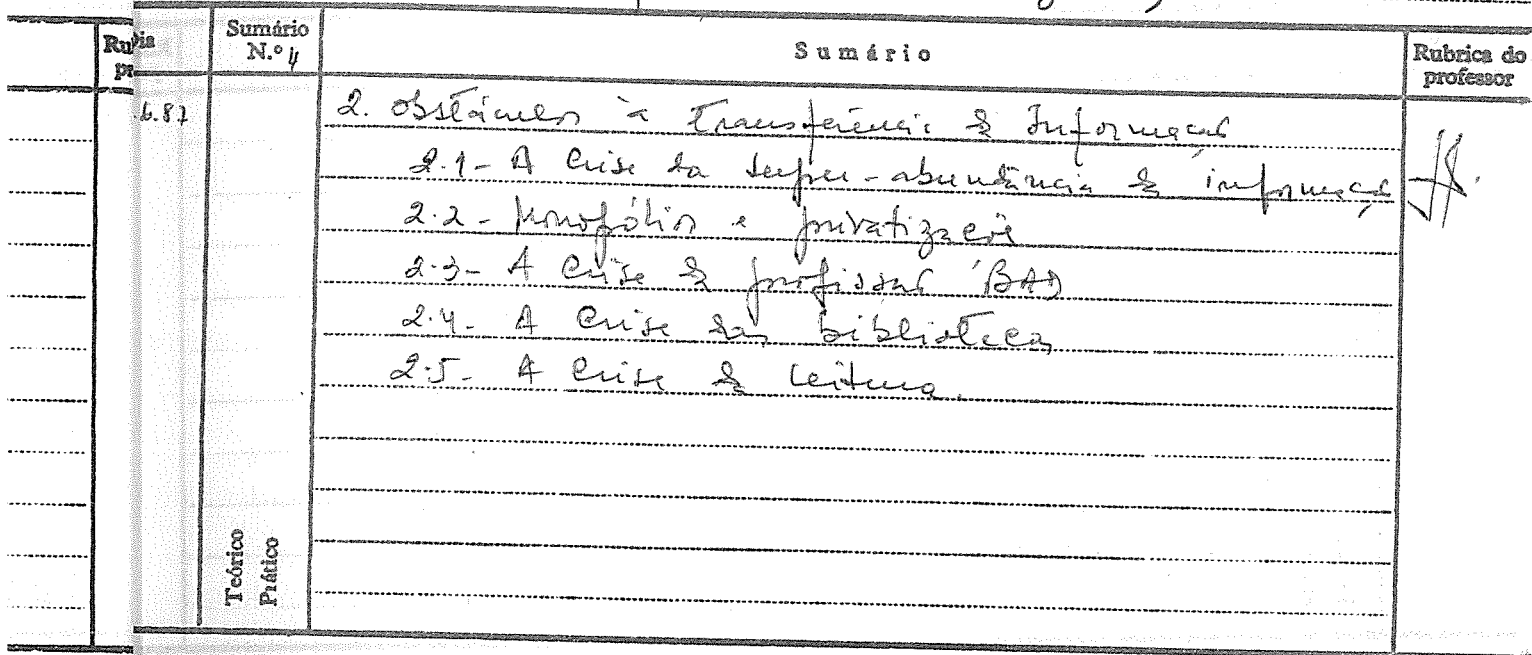 Ru
pr
Dia
Sumário
N.º 4
Sumário
Rubrica do
professor
6.87
2. Obstáculos à Transferência de Informação
2.1- A Crise da super-abundância de informação
2.2- Monopólios e privatização
2.3- A Crise da profissão BAD
2.4- A Crise das bibliotecas
2.5- A Crise da Leitura.
Teórico
Prático